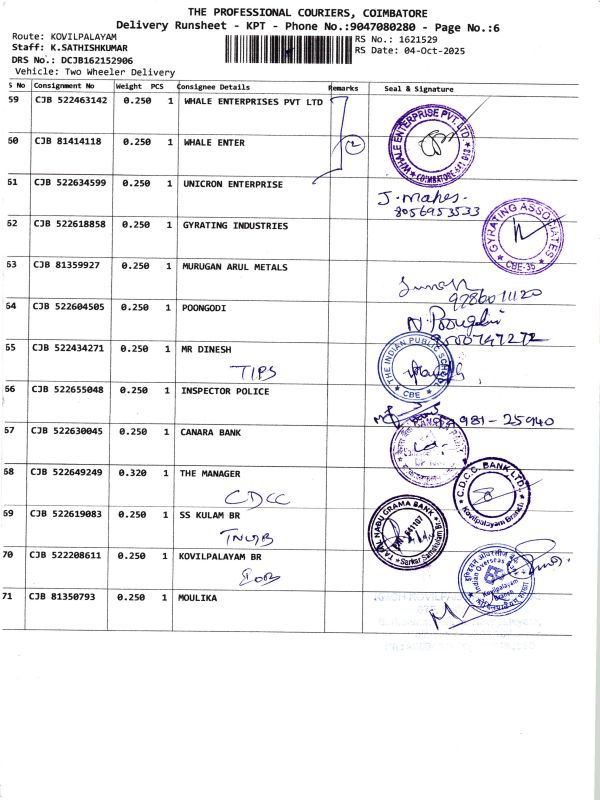 THE PROFESSIONAL COURIERS, COIMBATORE
Delivery Runsheet - KPT - Phone No.:9047080280 - Page No.:6
Route: KOVILPALAYAM
RS No.: 1621529
Staff: K.SATHISHKUMAR
RS Date: 04-Oct-2025
DRS No.: DCJB162152906
Vehicle: Two Wheeler Delivery
S No Consignment No Weight PCS Consignee Details Remarks Seal & Signature
59 CJB 522463142 0.250 1 WHALE ENTERPRISES PVT LTD
WHALE ENTERPRISE PVT. LTD.
COIMBATORE-641 013
60 CJB 81414118 0.250 1 WHALE ENTER 2
61 CJB 522634599 0.250 1 UNICRON ENTERPRISE
J. Mahes
8056953533
62 CJB 522618858 0.250 1 GYRATING INDUSTRIES
GYRATING ASSOCIATES
CBE-35
63 CJB 81359927 0.250 1 MURUGAN ARUL METALS
64 CJB 522604505 0.250 1 POONGODI
65 CJB 522434271 0.250 1 MR DINESH
TIPS
THE INDIAN PUBLIC SCHOOL
CBE
66 CJB 522655048 0.250 1 INSPECTOR POLICE
67 CJB 522630045 0.250 1 CANARA BANK
68 CJB 522649249 0.320 1 THE MANAGER
CDCC
C.D.C.C. BANK LTD.
Kovilpalayam Branch
69 CJB 522619083 0.250 1 SS KULAM BR
TNGB
TAMIL NADU GRAMA BANK
641107
70 CJB 522208611 0.250 1 KOVILPALAYAM BR
IOB
Indian Overseas Bank
Kovilpalayam
Branch
71 CJB 81350793 0.250 1 MOULIKA